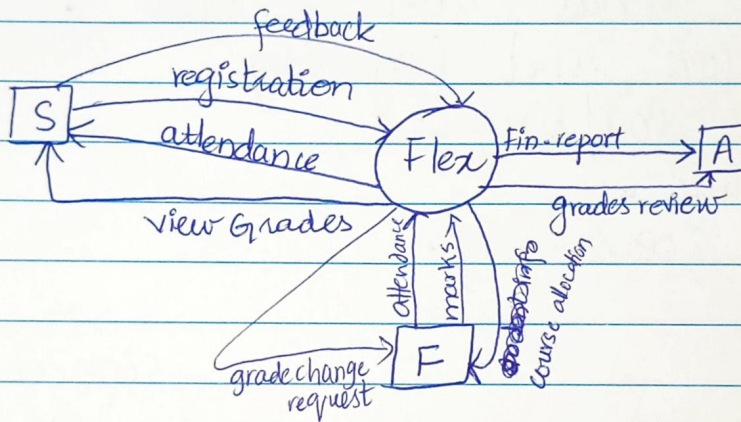 feedback
registration
S
attendance
Flex
Fin-report
A
view Grades
grades review
attendance
marks
info
course allocation
F
grade change
request